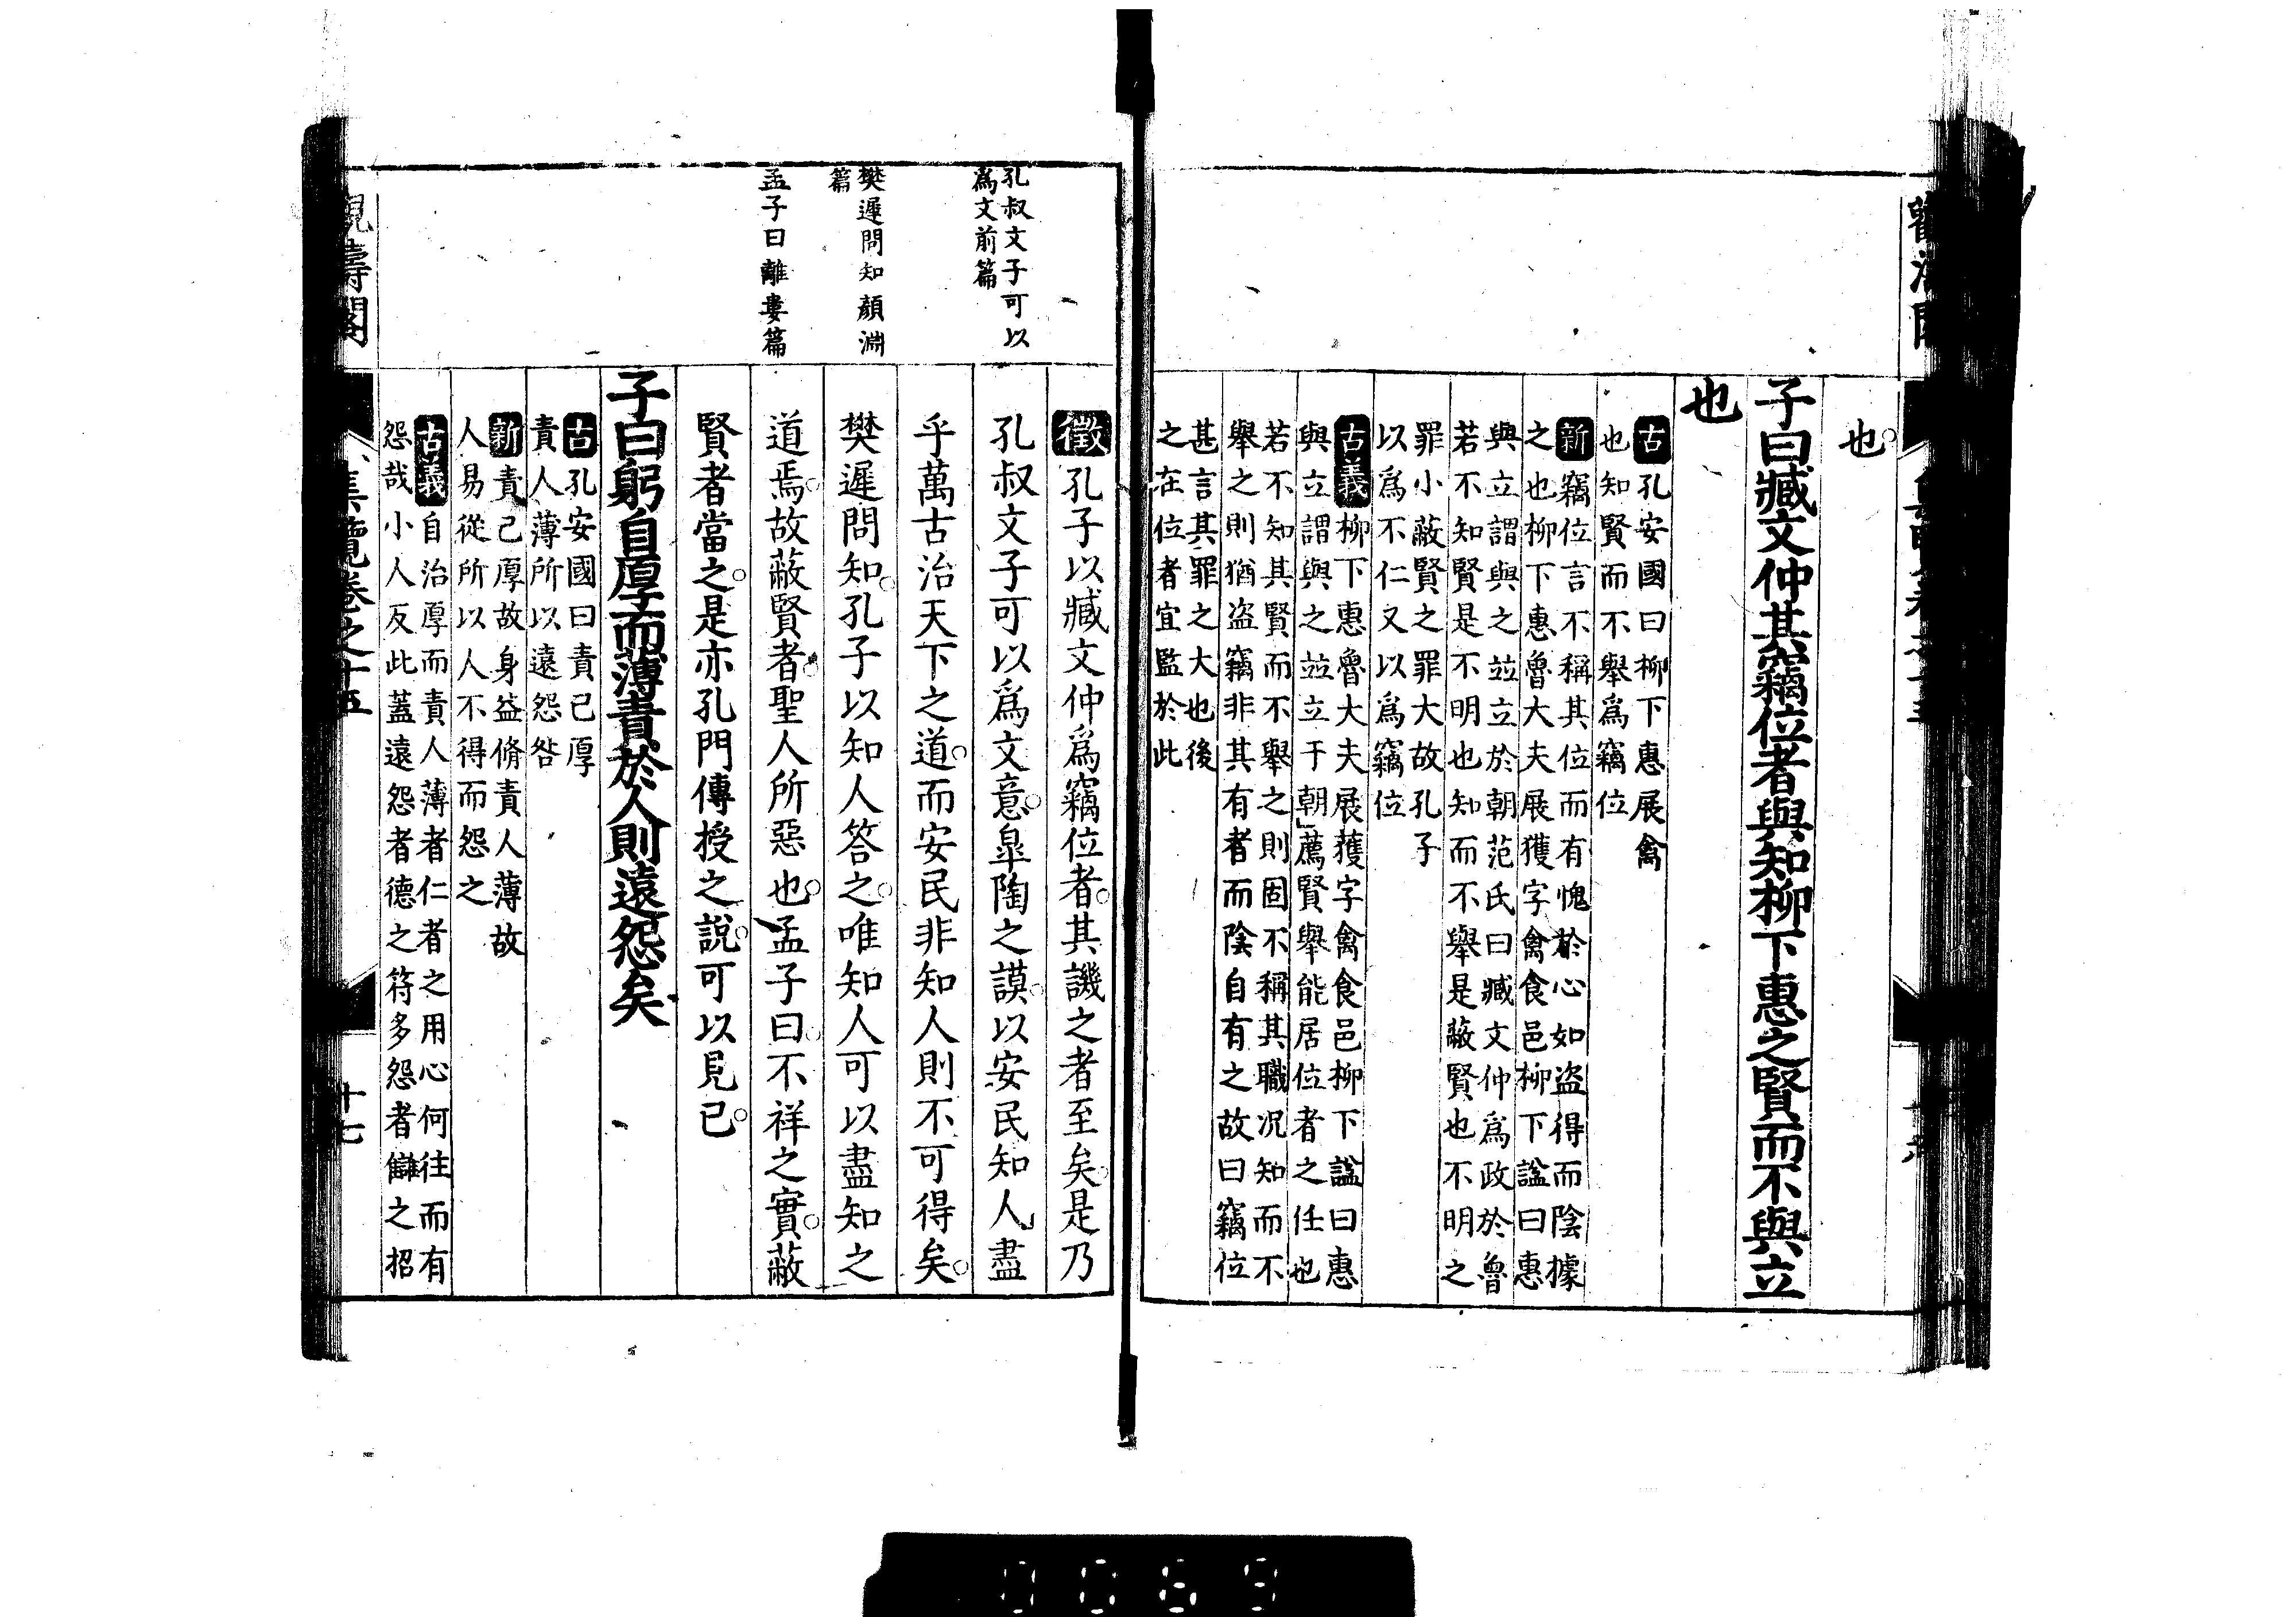 也
子曰臧文仲其竊位者與知柳下惠之賢而不與立
也
古孔安國曰柳下惠展禽
也知賢而不舉爲竊位
新竊位言不稱其位而有愧於心如盗得而陰據
之也柳下惠魯大夫展獲字禽食邑柳下諡曰惠
與立謂與之並立於朝范氏曰臧文仲爲政於魯
若不知賢是不明也知而不舉是蔽賢也不明之
罪小蔽賢之罪大故孔子
以爲不仁又以爲竊位
古義柳下惠魯大夫展獲字禽食邑柳下諡曰惠
與立謂與之並立于朝薦賢舉能居位者之任也
若不知其賢而不舉之則固不稱其職况知而不
舉之則猶盗竊非其有者而陰自有之故曰竊位
甚言其罪之大也後
之在位者宜監於此
孔叔文子可以
爲文前篇
樊遲問知顏淵
篇
孟子曰離婁篇
徵孔子以臧文仲爲竊位者其譏之者至矣是乃
孔叔文子可以爲文意皐陶之謨以安民知人盡
乎萬古治天下之道而安民非知人則不可得矣
樊遲問知孔子以知人答之唯知人可以盡知之
道焉故蔽賢者聖人所惡也孟子曰不祥之實蔽
賢者當之是亦孔門傳授之說可以見已
子曰躬自厚而薄責於人則遠怨矣
古孔安國曰責己厚
責人薄所以遠怨咎
新責己厚故身益脩責人薄故
人易從所以人不得而怨之
古義自治厚而責人薄者仁者之用心何往而有
怨哉小人反此蓋遠怨者德之符多怨者讎之招
集覽卷之十五
十七